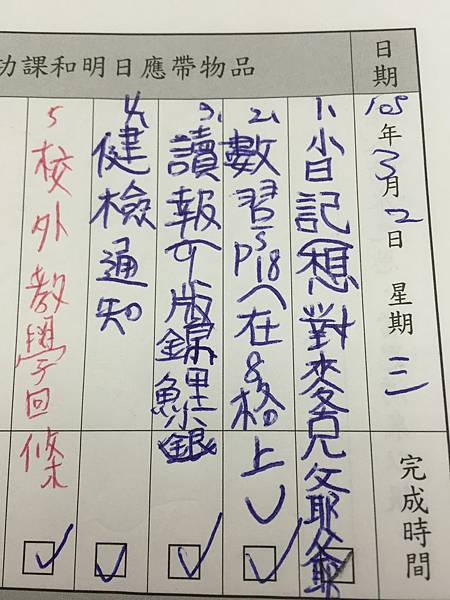 日期
105年3月2日 星期三
完成時間
功課和明日應帶物品
1、小日記(想對麥
2、數習 P18 在8格上
3、讀報 版錦鯉
4、健檢通知
5 校外教學回條